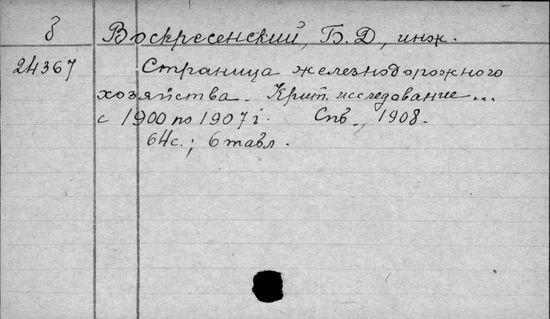 З Воскресенский, Б. Д., инж.
24367 Страница железнодорожного
хозяйства. Крит. исследование...
с 1900 по 1907 г. Спб., 1908.
64 с.; 6 табл.